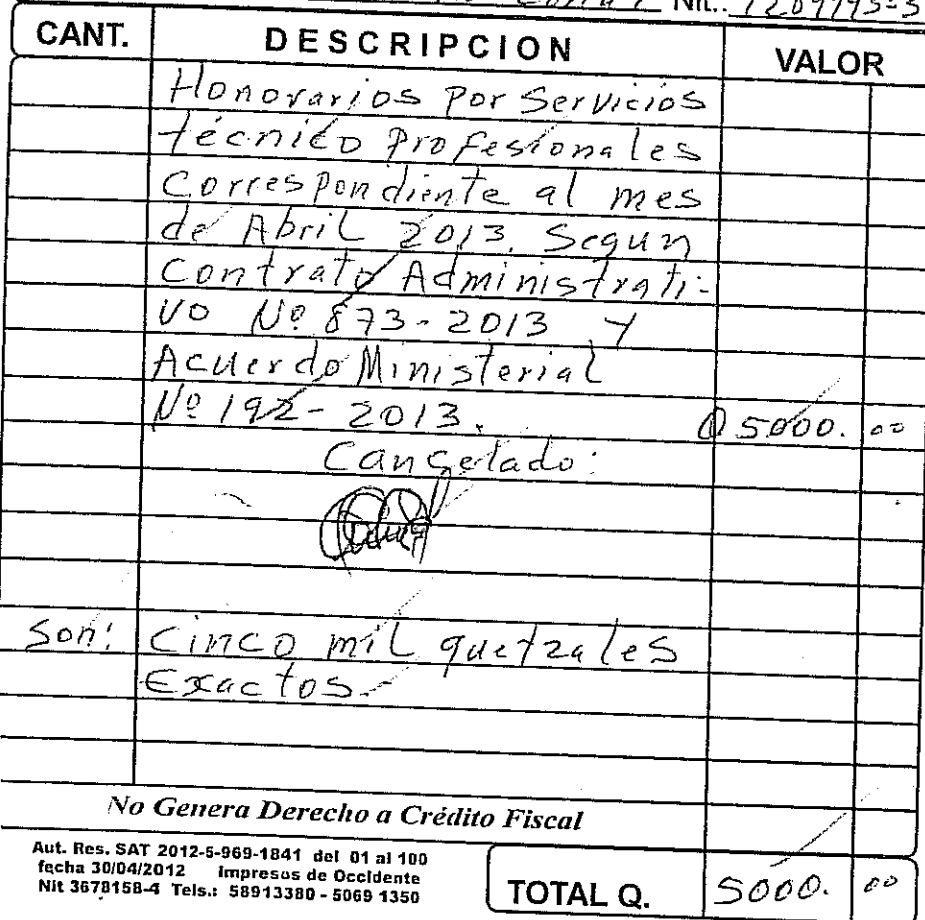 Nit.: 1209793-3
CANT. DESCRIPCION VALOR
Honorarios Por Servicios
técnico Profesionales
Correspondiente al mes
de Abril 2013. Segun
Contrato Administrati-
vo Nº 873-2013 Y
Acuerdo Ministerial
Nº 192-2013. Q 5000. 00
Cancelado:
Son: Cinco mil quetzales
Exactos.
No Genera Derecho a Crédito Fiscal
Aut. Res. SAT 2012-5-969-1841 del 01 al 100
fecha 30/04/2012 Impresos de Occidente
Nit 3678158-4 Tels.: 58913380 - 5069 1350
TOTAL Q. 5000. 00